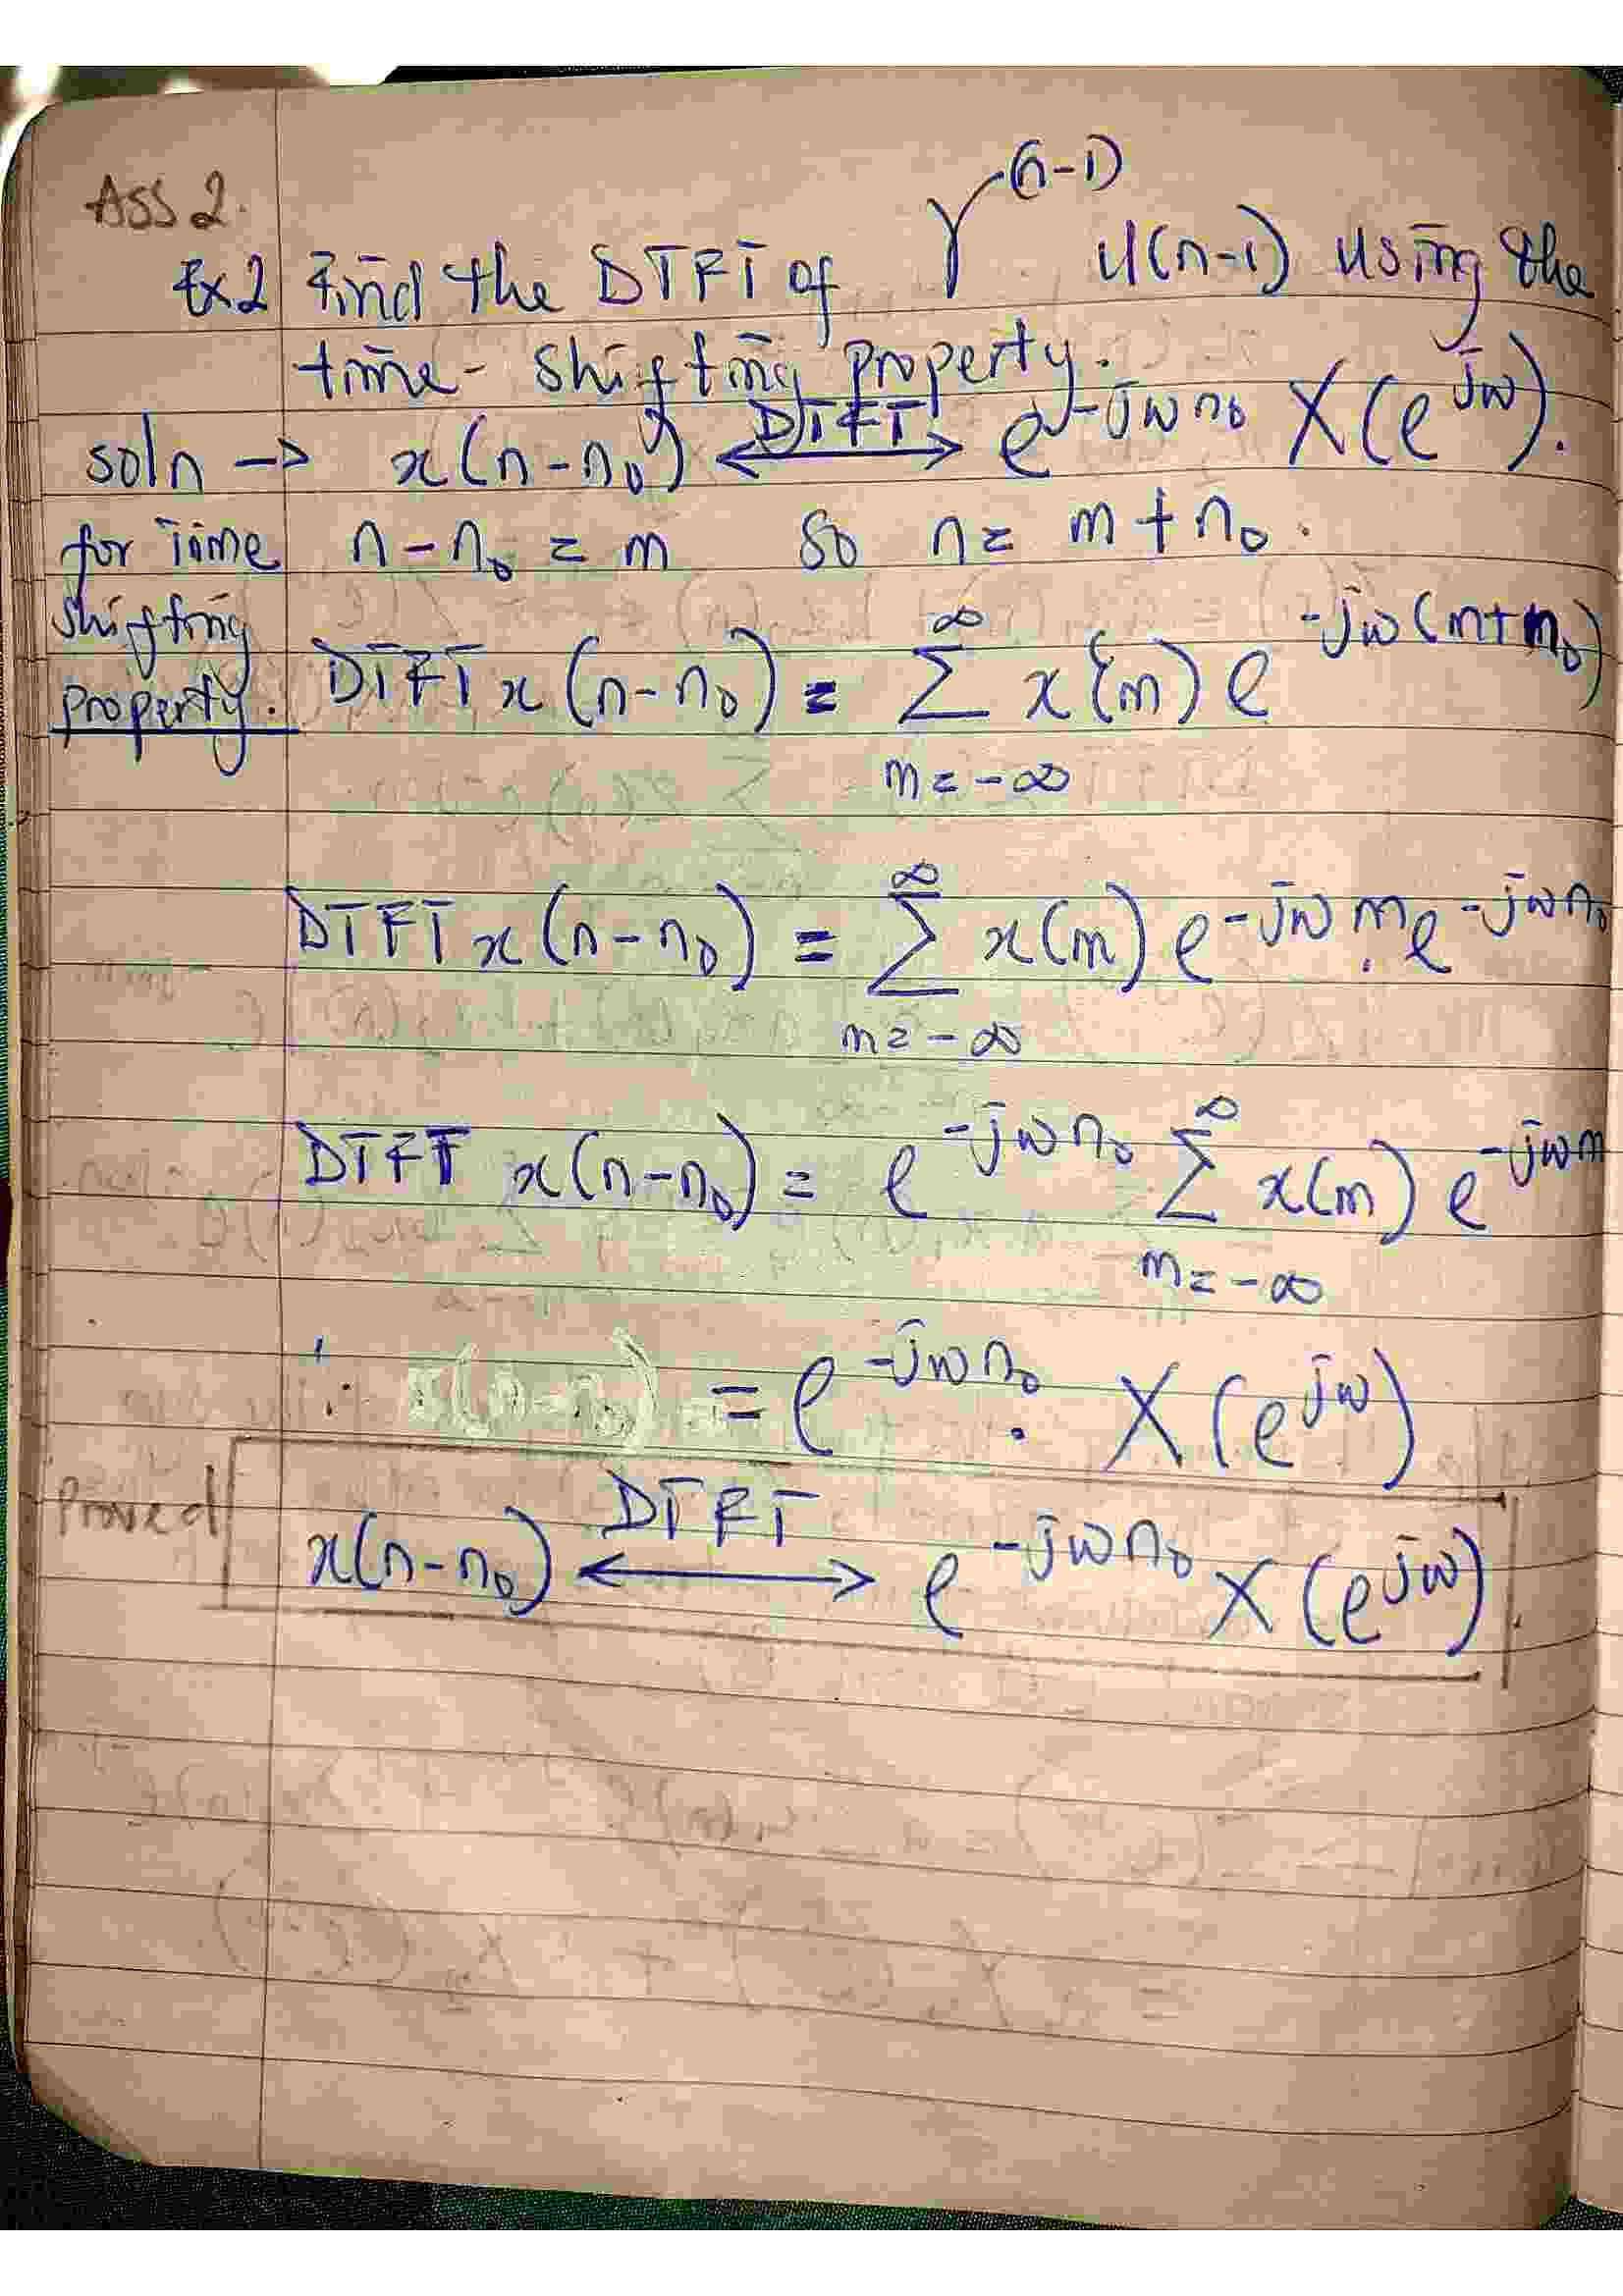 Ass 2.
Ex 2 Find the DTFT of γ^(n-1) u(n-1) using the
time-shifting property.
soln → x(n-n₀) ⟷DTFT e^-jωn₀ X(e^jω).
for Time n-n₀ = m so n = m+n₀.
shifting
property. DTFT x(n-n₀) = ∞ Σ m=-∞ x(m) e^-jω(m+n₀)
DTFT x(n-n₀) = ∞ Σ m=-∞ x(m) e^-jωm . e^-jωn₀
DTFT x(n-n₀) = e^-jωn₀ ∞ Σ m=-∞ x(m) e^-jωm
∴ x(n-n₀) = e^-jωn₀ . X(e^jω)
Proved x(n-n₀) ⟷DTFT e^-jωn₀ X(e^jω).